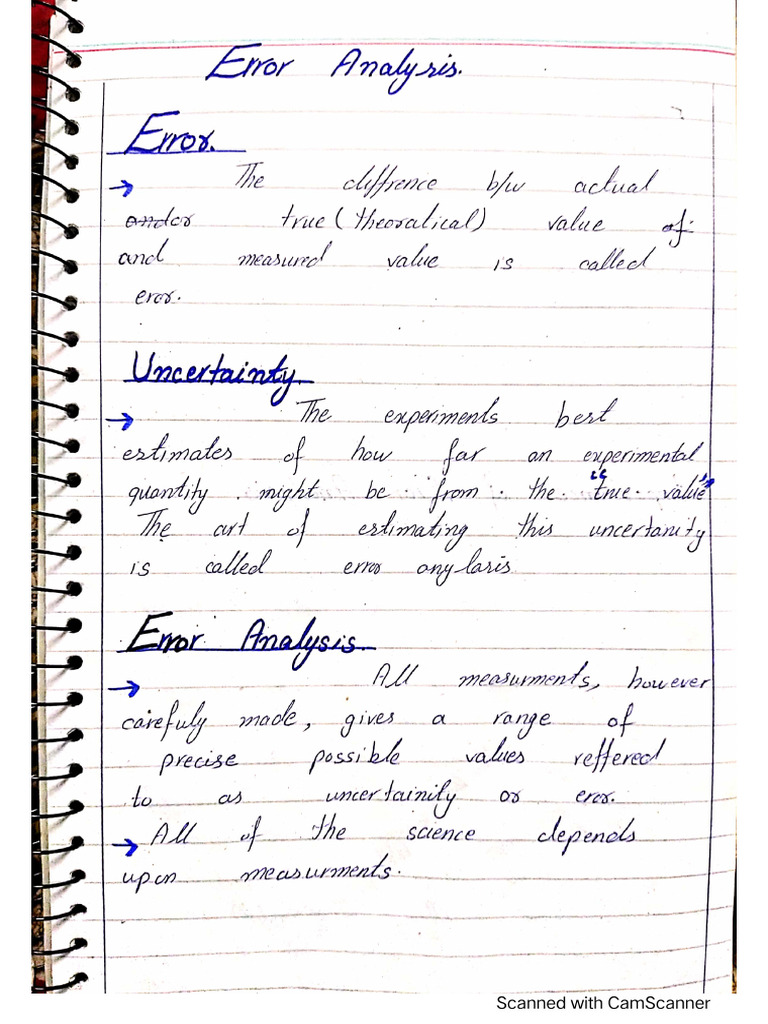 Error Analysis.
Error.
→ The diffrence b/w actual
and or true (theoratical) value of
and measured value is called
eror.
Uncertainty.
→ The experiments best
estimates of how far an experimental
quantity might be from the true value
is
The art of estimating this uncertanity
is called error anylaris
Error Analysis.
→ All measurments, however
carefuly made, gives a range of
precise possible values reffered
to as uncertainity or eror.
→ All of the science depends
upon measurments.
Scanned with CamScanner